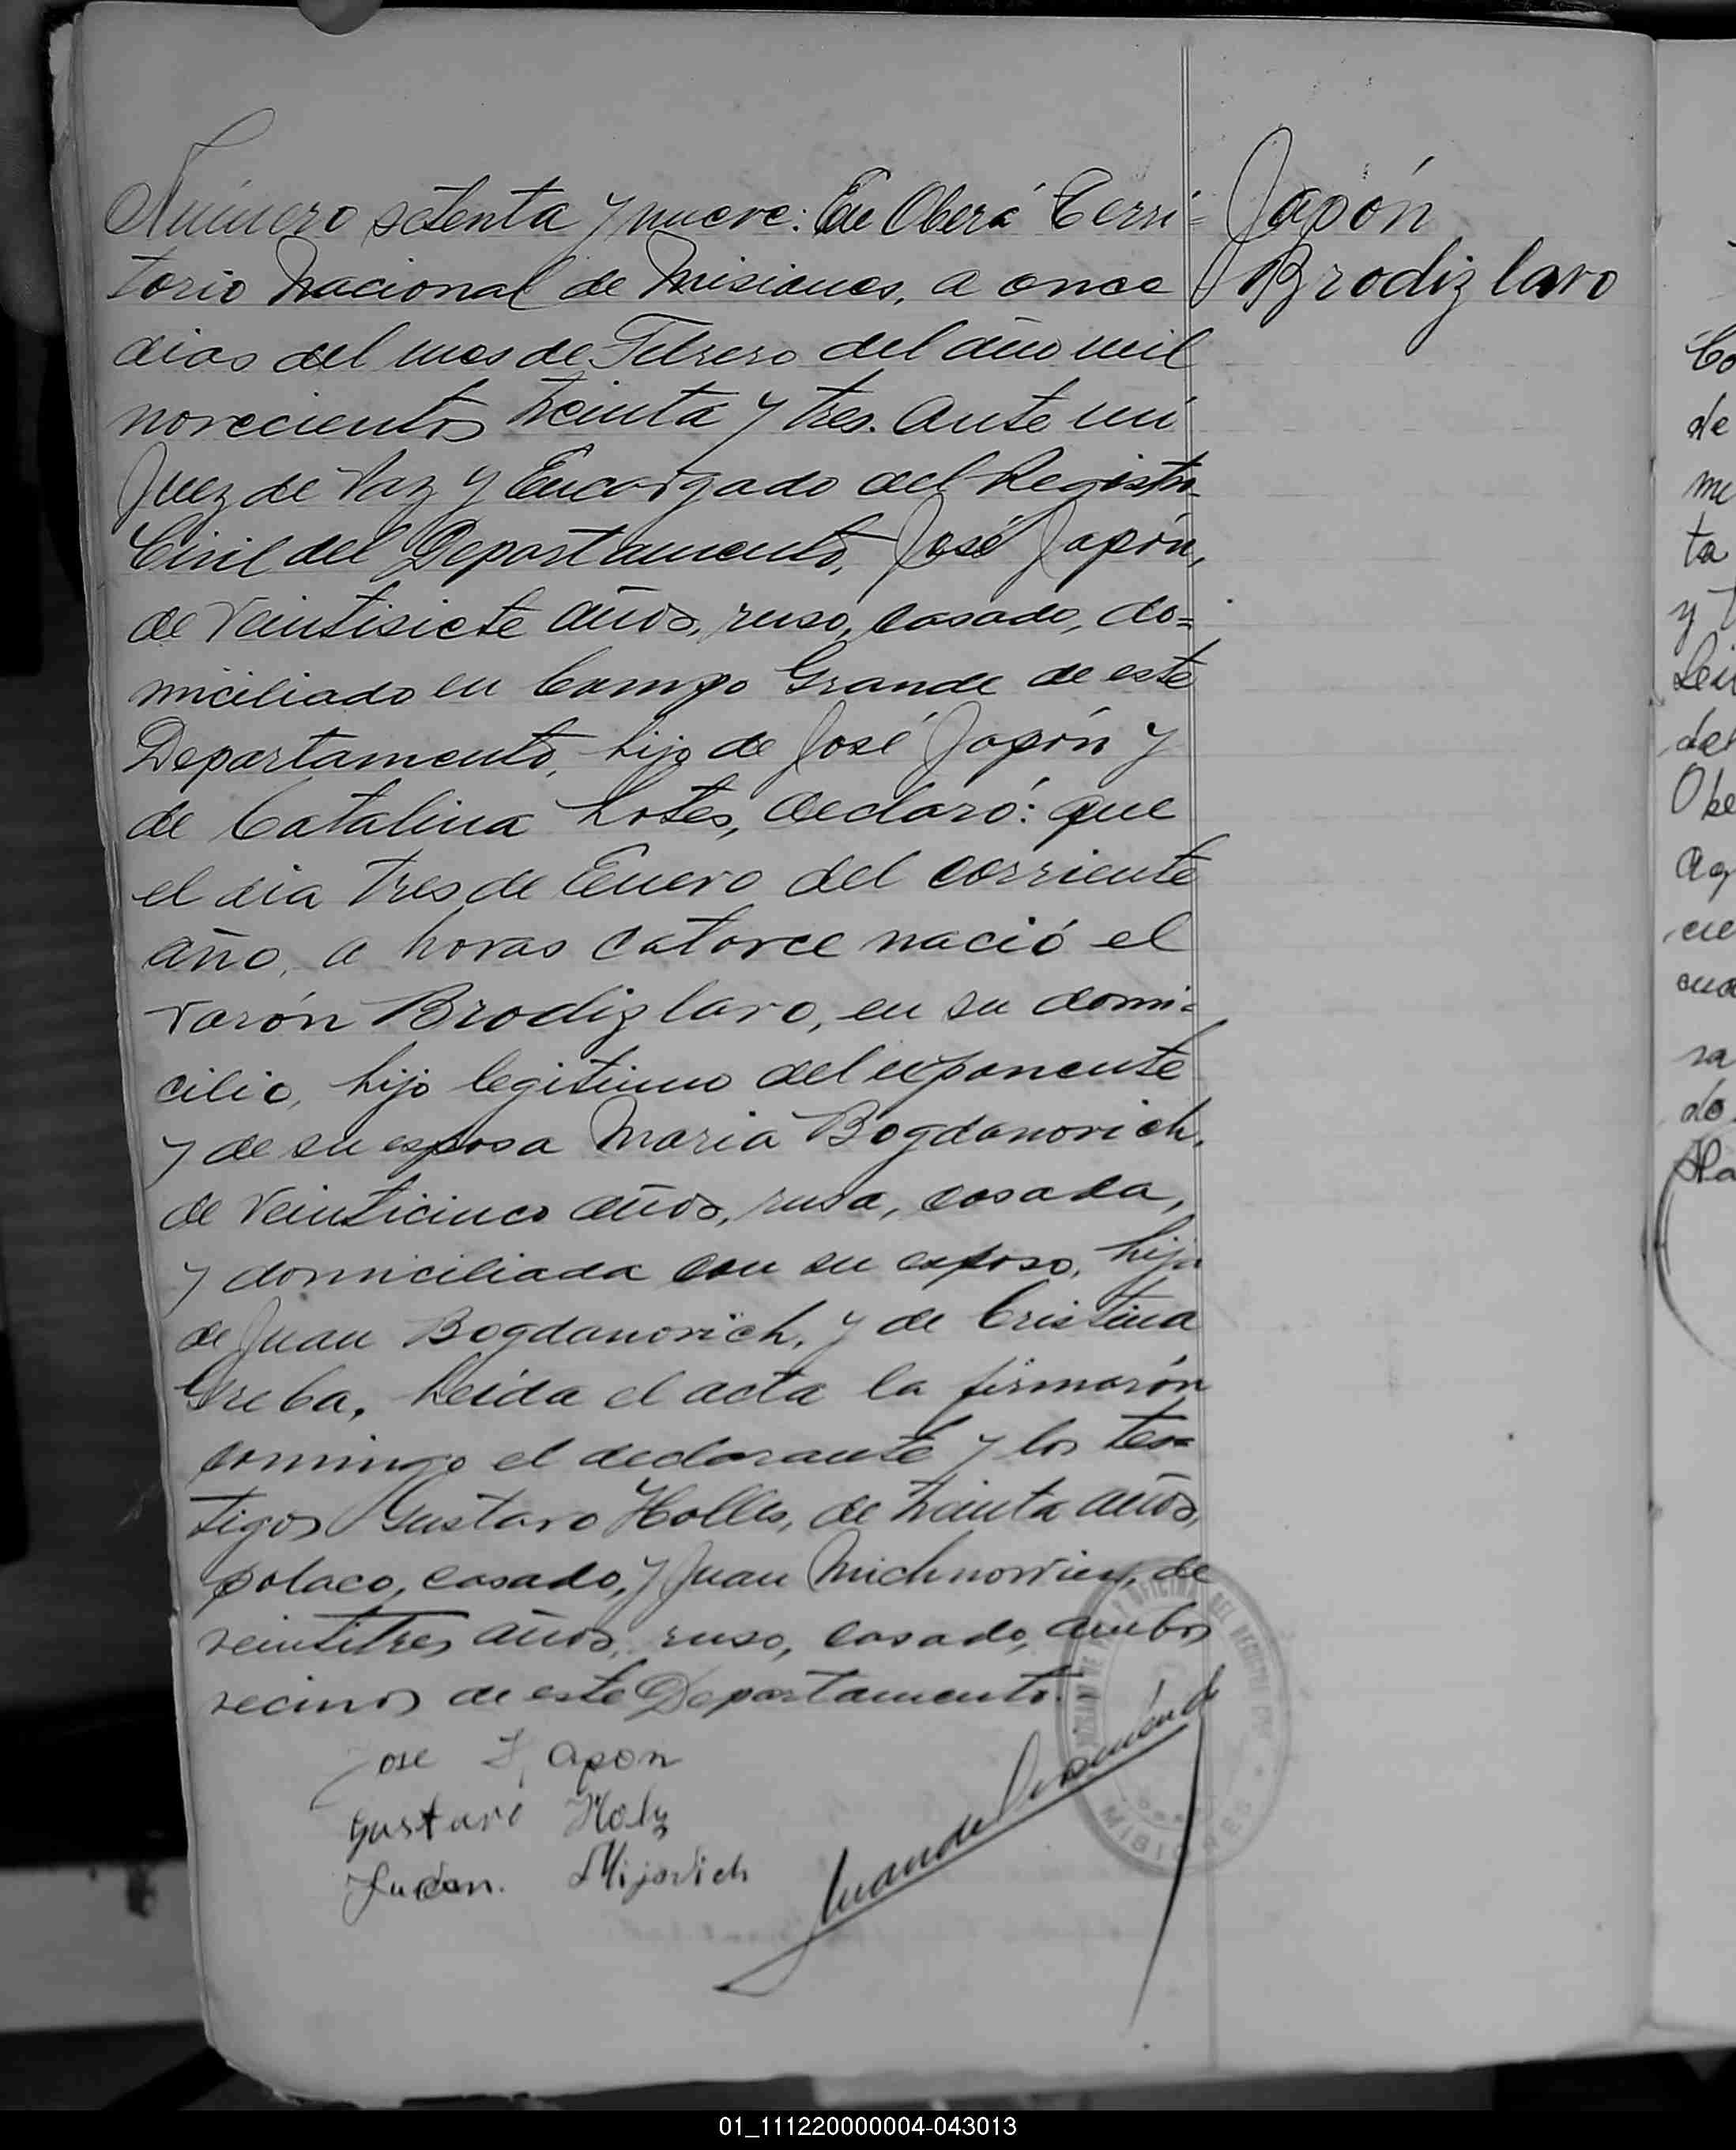 Número setenta y nueve: En Oberá Terri-
torio Nacional de Misiones, a once
dias del mes de Febrero del año mil
novecientos treinta y tres. Ante mi
Juez de Paz y Encargado del Registro
Civil del Departamento, José Japón,
de veintisiete años, ruso, casado, do=
miciliado en Campo Grande de este
Departamento, hijo de José Japón y
de Catalina Lotes, declaró: que
el dia tres de Enero del corriente
año, a horas catorce nació el
varón Brodizlavo, en su domi-
cilio, hijo legitimo del exponente
y de su esposa Maria Bogdanovich,
de veinticinco años, rusa, casada,
y domiciliada con su esposo, hija
de Juan Bogdanovich, y de Cristina
Greba. Leida el acta la firmarón
conmigo el declarante y los tes=
tigos Gustavo Holles, de treinta años,
polaco, casado, y Juan de
veintitres años, ruso, casado, ambos
vecinos de este Departamento.
Jose Japon
Gustavo Holz
Juan. Mijovich
Japón
Brodizlavo
MISIONES
Co
de
me
ta
y
Lei
del
Obe
ag
cu
sa
do
01_111220000004-043013